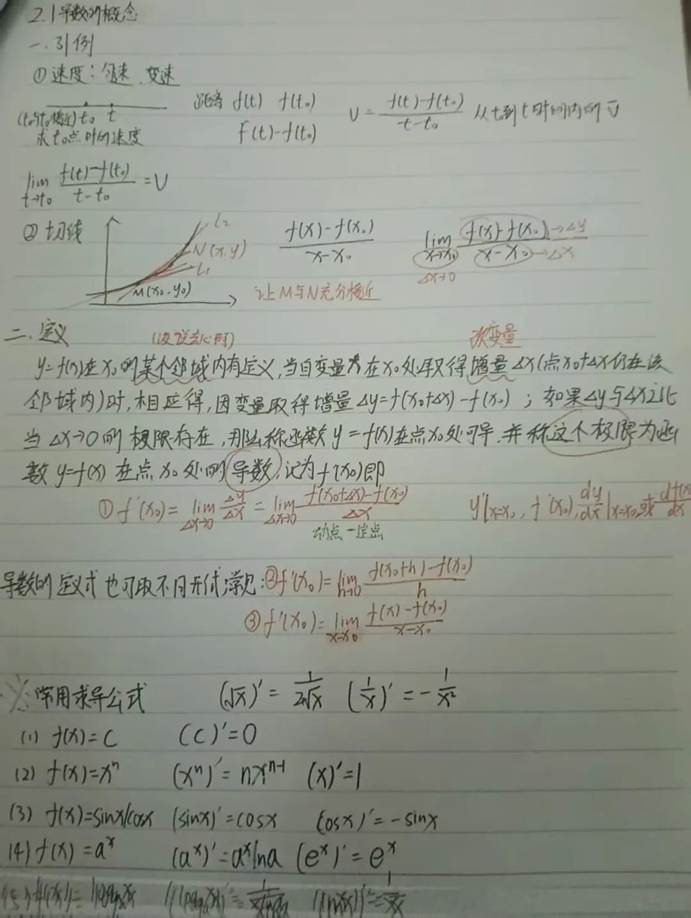 2.1 导数的概念
一.引例
① 速度：匀速、变速
距离 f(t) f(t₀) v = (f(t)-f(t₀))/(t-t₀) 从t₀到t时间内的 v̄
t₀ t
求t₀点时的速度 f(t)-f(t₀)
lim t→t₀ (f(t)-f(t₀))/(t-t₀) = v
② 切线 L₂ (f(x)-f(x₀))/(x-x₀) lim x→x₀ (f(x)-f(x₀))/(x-x₀) →Δy →Δx
N(x,y) Δx→0
L₁
M(x₀,y₀) 让M与N充分接近
二.定义
改变量
y=f(x)在x₀的某个邻域内有定义,当自变量x在x₀处取得增量Δx(点x₀+Δx仍在该
邻域内)时,相应得,因变量取得增量Δy=f(x₀+Δx)-f(x₀)；如果Δy与Δx之比
当Δx→0的极限存在,那么称函数y=f(x)在点x₀处可导.并称这个极限为函
数y=f(x)在点x₀处的导数,记为f'(x₀)即
① f'(x₀) = lim Δx→0 Δy/Δx = lim Δx→0 (f(x₀+Δx)-f(x₀))/Δx y'|x=x₀, f'(x₀), dy/dx|x=x₀ 或 df(x)/dx
动点-定点
导数的定义式也可取不同形式,常见:② f'(x₀) = lim h→0 (f(x₀+h)-f(x₀))/h
③ f'(x₀) = lim x→x₀ (f(x)-f(x₀))/(x-x₀)
※常用求导公式 (√x)' = 1/(2√x) (1/x)' = -1/x²
(1) f(x)=C (C)'=0
(2) f(x)=xⁿ (xⁿ)'=nxⁿ⁻¹ (x)'=1
(3) f(x)=sinx/cosx (sinx)'=cosx (cosx)'=-sinx
(4) f(x)=aˣ (aˣ)'=aˣlna (eˣ)'=eˣ
(5) f(x)=logₐx (logₐx)'=1/(xlna) (lnx)'=1/x